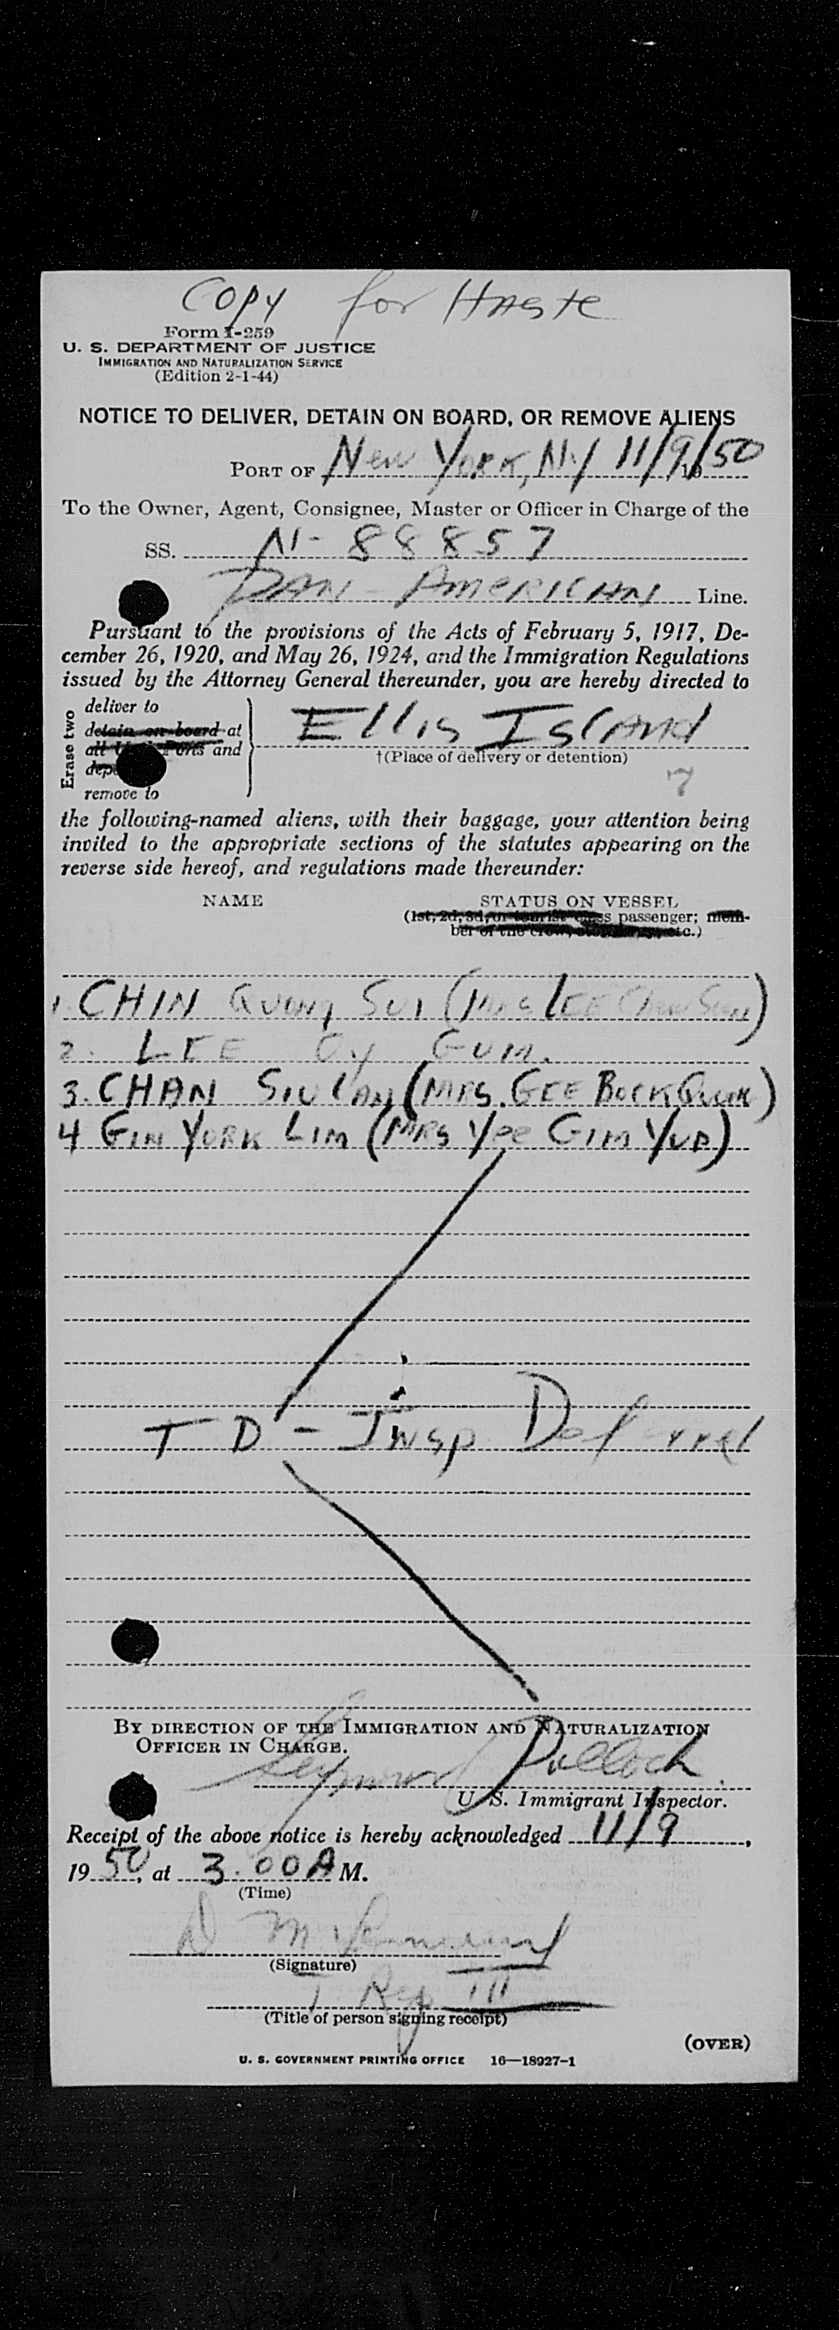 Copy for Haste
Form I-259
U. S. DEPARTMENT OF JUSTICE
IMMIGRATION AND NATURALIZATION SERVICE
(Edition 2-1-44)
NOTICE TO DELIVER, DETAIN ON BOARD, OR REMOVE ALIENS
PORT OF New York, NY 11/9/1950
To the Owner, Agent, Consignee, Master or Officer in Charge of the
SS. N-88857
PAN-AMERICAN Line.
Pursuant to the provisions of the Acts of February 5, 1917, De-
cember 26, 1920, and May 26, 1924, and the Immigration Regulations
issued by the Attorney General thereunder, you are hereby directed to
Erase two
deliver to
detain on board at
all U.S. Ports and
remove to
Ellis Island
†(Place of delivery or detention)
7
the following-named aliens, with their baggage, your attention being
invited to the appropriate sections of the statutes appearing on the
reverse side hereof, and regulations made thereunder:
NAME
STATUS ON VESSEL
(1st, 2d, 3d, or tourist class passenger; mem-
ber of the crew, etc.)
1. CHIN Quong Sui (Mrs LEE Chan)
2. LEE Oy GUM.
3. CHAN SIU LAN (MRS. GEE BOCK QUON)
4 GIN YORK LIM (MRS Yee GIM YUP)
T D - Insp Deferral
BY DIRECTION OF THE IMMIGRATION AND NATURALIZATION
OFFICER IN CHARGE.
Seymour Pollock
U. S. Immigrant Inspector.
Receipt of the above notice is hereby acknowledged 11/9,
1950, at 3.00 A M.
(Time)
D M
(Signature)
T Rep III
(Title of person signing receipt)
(OVER)
U. S. GOVERNMENT PRINTING OFFICE 16—18927-1